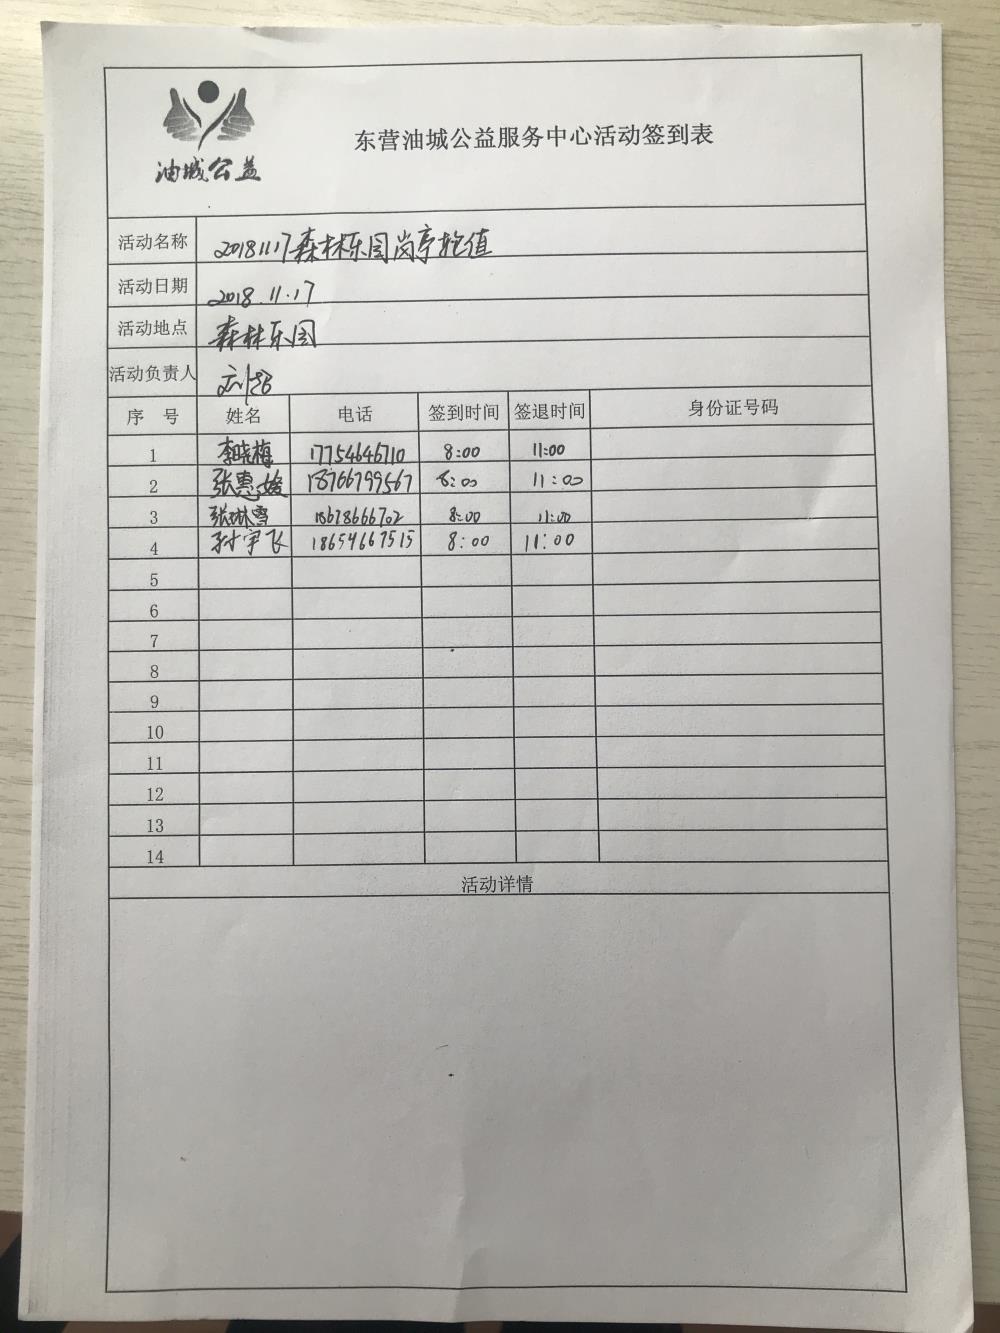 油城公益
东营油城公益服务中心活动签到表
活动名称 20181117森林乐园岗亭抢值
活动日期 2018.11.17
活动地点 森林乐园
活动负责人 刘超
序 号 姓名 电话 签到时间 签退时间 身份证号码
1 李晓梅 17754646710 8:00 11:00
2 张惠 18766799567 8:00 11:00
3 张琳雪 18678666702 8:00 11:00
4 孙宇飞 18654667515 8:00 11:00
5
6
7
8
9
10
11
12
13
14
活动详情